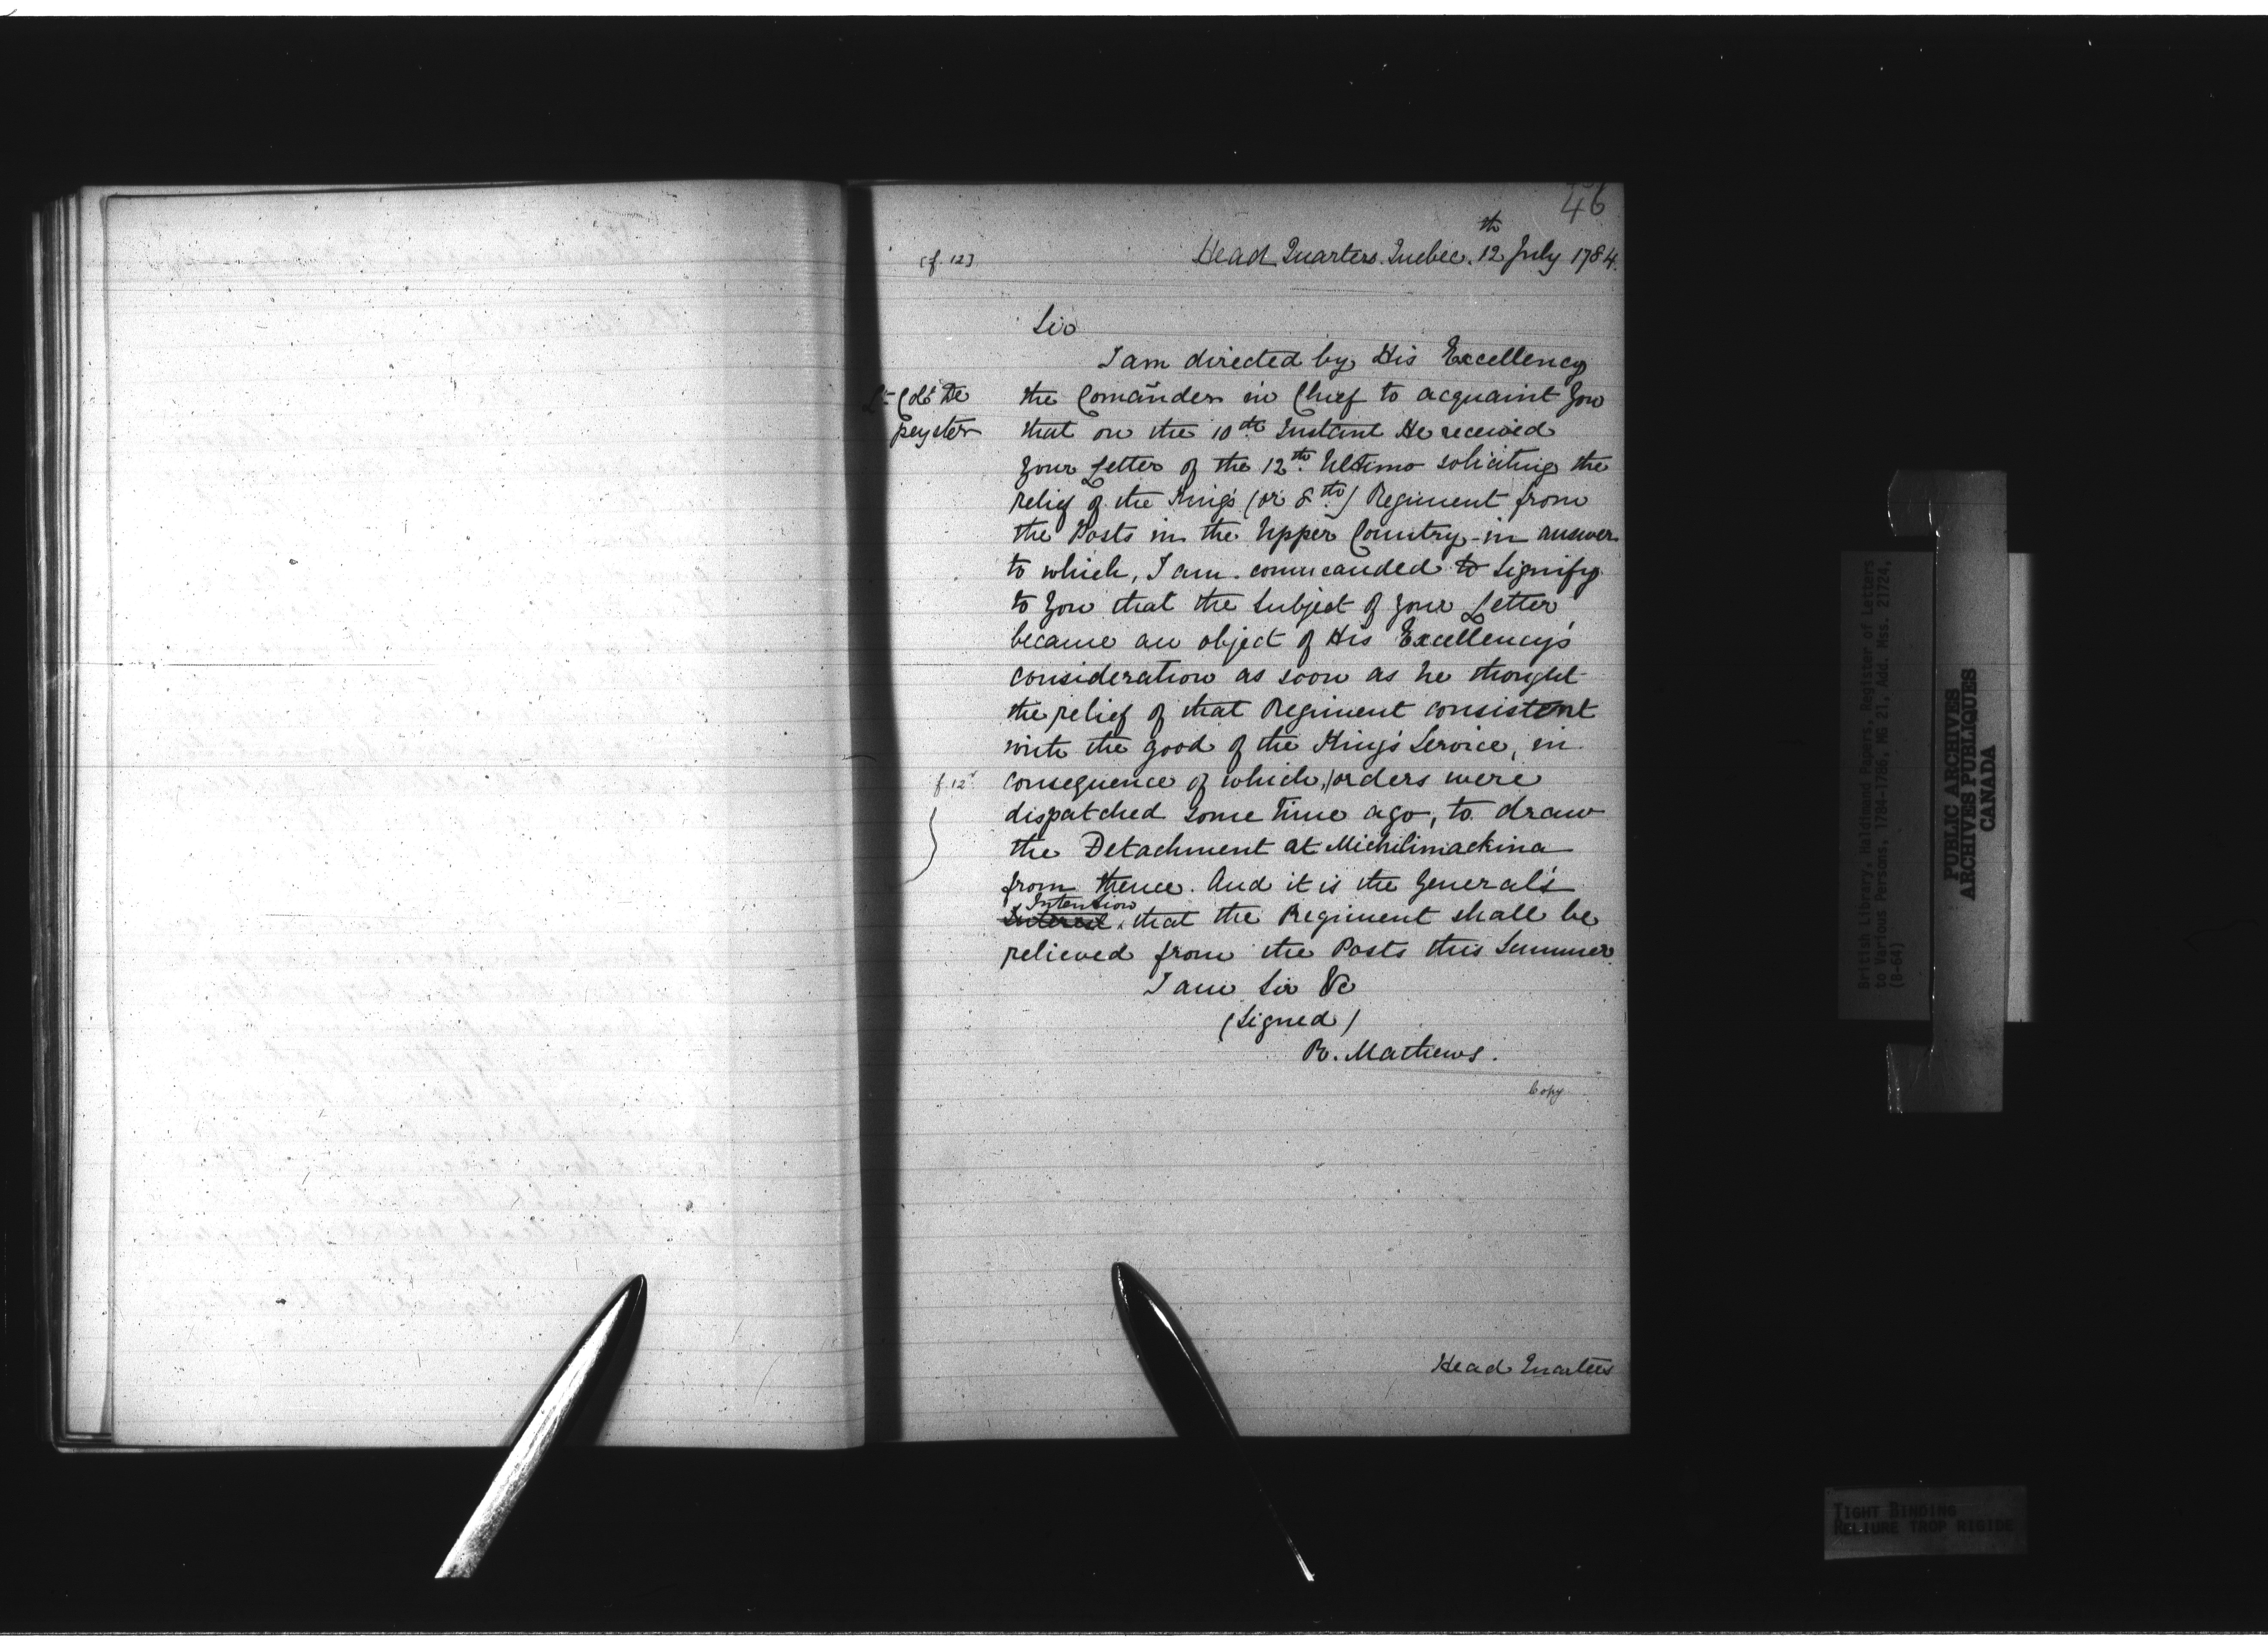 46
[f. 12]
Head Quarters Quebec 12th July 1784.
Sir
I am directed by His Excellency
Lt Colo De
peyster
the Comander in Chief to acquaint You
that on the 10th Instant He received
Your Letter of the 12th Ultimo soliciting the
relief of the King's (or 8th) Regiment from
the Posts in the Upper Country - in answer
to which, I am commanded to Signify
to You that the Subject of Your Letter
became an object of His Excellency's
consideration as soon as he thought
the relief of that Regiment consistent
with the good of the King's Service, in
f. 12v
consequence of which, orders were
dispatched some Time ago, to draw
the Detachment at Michilimackina
from thence. And it is the General's
Intention
Interest that the Regiment shall be
relieved from the Posts this Summer.
I am Sir &c
(Signed)
R. Mathews.
Copy
Head Quarters
British Library, Haldimand Papers, Register of Letters
to Various Persons, 1784-1786, MG 21, Add. Mss. 21724,
(B-64)
PUBLIC ARCHIVES
ARCHIVES PUBLIQUES
CANADA
TIGHT BINDING
RELIURE TROP RIGIDE